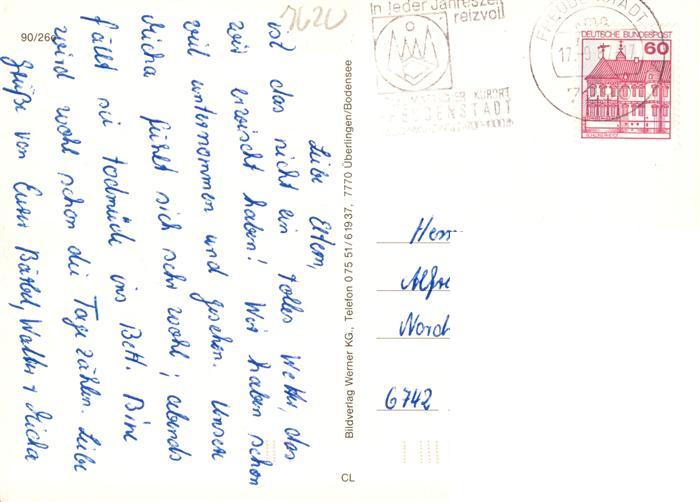 90/26
7620
Liebe Eltern,
ist das nicht ein tolles Wetter, das
wir erwischt haben! Wir haben schon
viel unternommen und gesehen. Unsere
Micha fühlt sich sehr wohl; abends
fällt sie todmüde ins Bett. Bine
wird wohl schon die Tage zählen. Liebe
Grüße von Euren Bärbel, Walter + Micha
Bildverlag Werner KG., Telefon 0 75 51 / 6 19 37, 7770 Überlingen/Bodensee
CL
In jeder Jahreszeit
reizvoll
FREUDENSTADT
FREUDENSTADT
DEUTSCHE BUNDESPOST
60
Herr
Alfre
Nord
6742